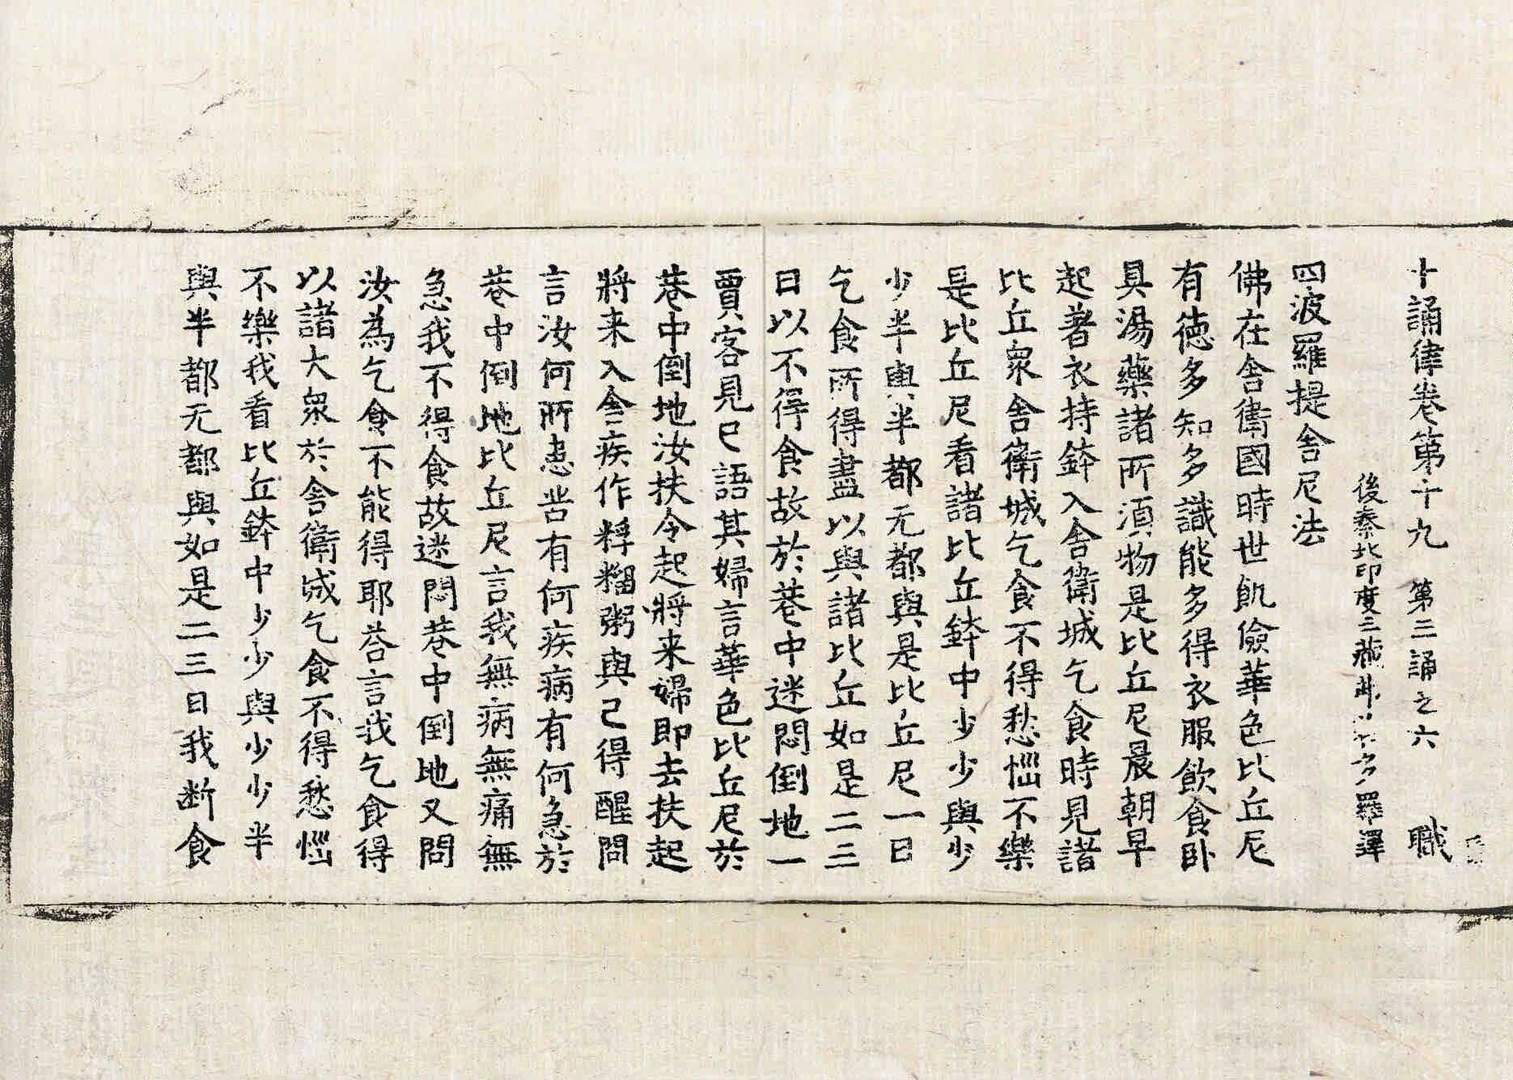 十誦律卷第十九 第三誦之六 職
後秦北印度三藏弗若多羅譯
四波羅提舍尼法
佛在舍衛國時世飢儉華色比丘尼
有德多知多識能多得衣服飲食卧
具湯藥諸所湏物是比丘尼晨朝早
起著衣持鉢入舍衛城乞食時見諸
比丘衆舍衛城乞食不得愁惱不樂
是比丘尼看諸比丘鉢中少少與少
少半與半都无都與是比丘尼一日
乞食所得盡以與諸比丘如是二三
日以不得食故於巷中迷悶倒地一
賈客見已語其婦言華色比丘尼於
巷中倒地汝扶令起將来婦即去扶起
將来入舍疾作粰糈粥與已得醒問
言汝何所患苦有何疾病有何急於
巷中倒地比丘尼言我無病無痛無
急我不得食故迷悶巷中倒地又問
汝為乞食不能得耶荅言我乞食得
以諸大衆於舍衛城乞食不得愁惱
不樂我看比丘鉢中少少與少少半
與半都无都與如是二三日我断食